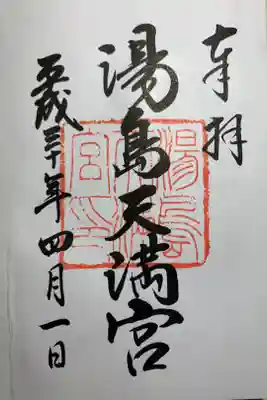 奉拝
湯島天満宮
平成三十年四月一日